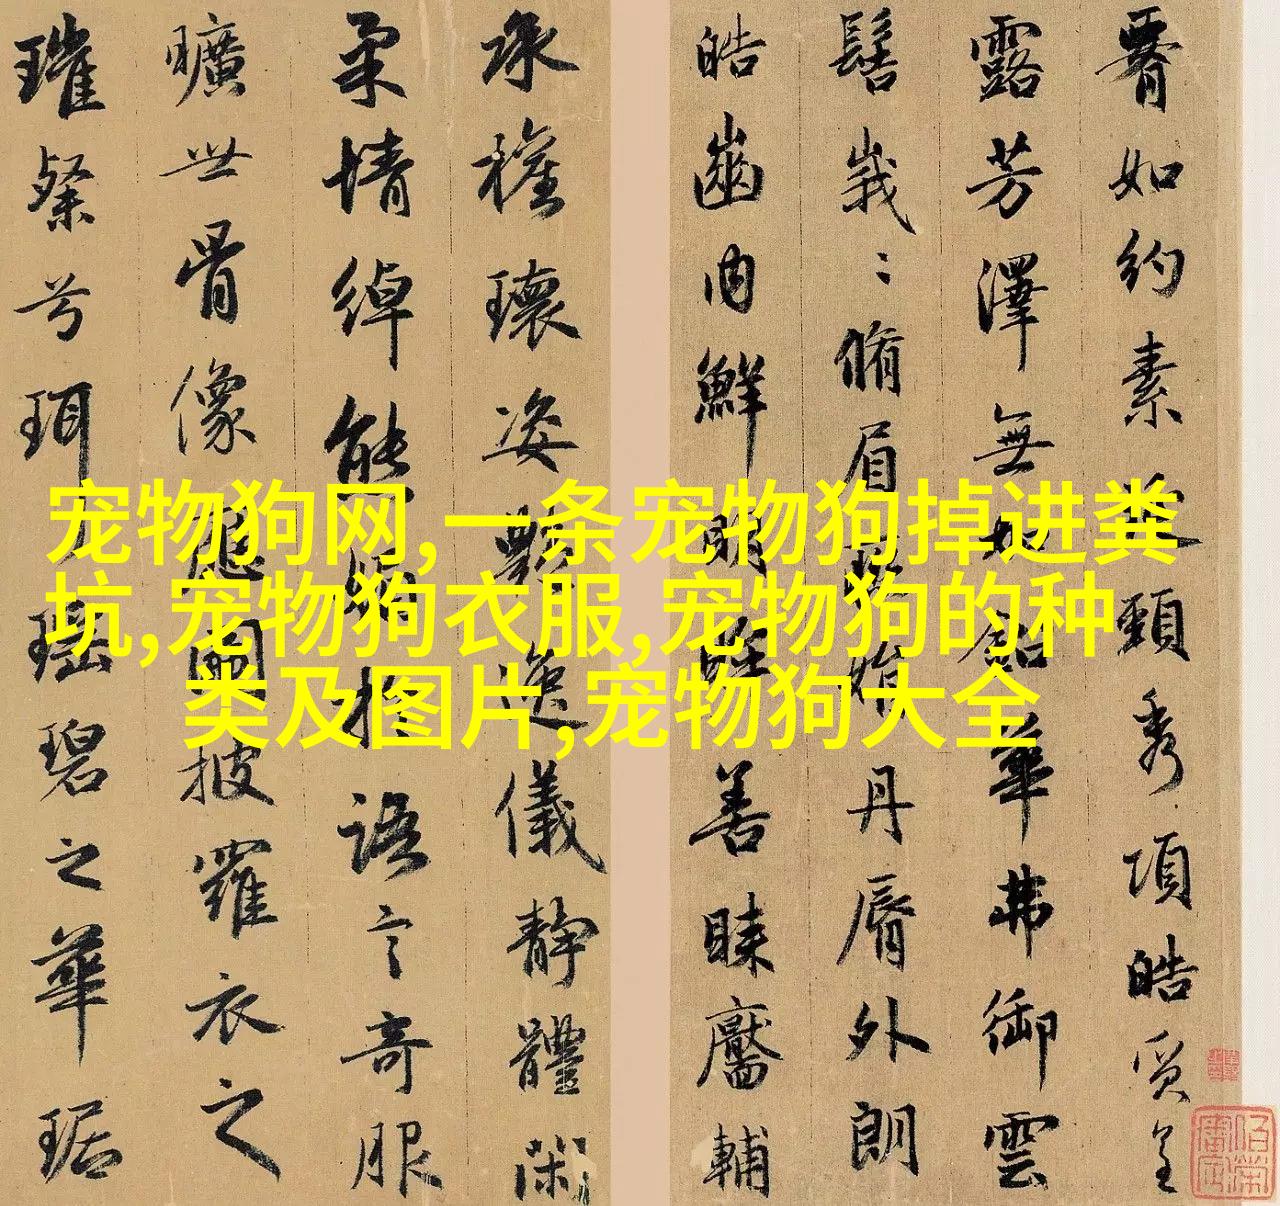 腰如約素延頸秀項皓質呈
露芳澤無加鉛華弗御雲
髻峩:脩眉聯娟丹脣外朗
皓齒內鮮明眸善睞靨輔
承權瓌姿豔逸儀靜體閑
柔情綽態媚於語言奇服
曠世骨像應圖披羅衣之
璀粲兮珥瑤碧之華琚
宠物狗网,一条宠物狗掉进粪
坑,宠物狗衣服,宠物狗的种
类及图片,宠物狗大全